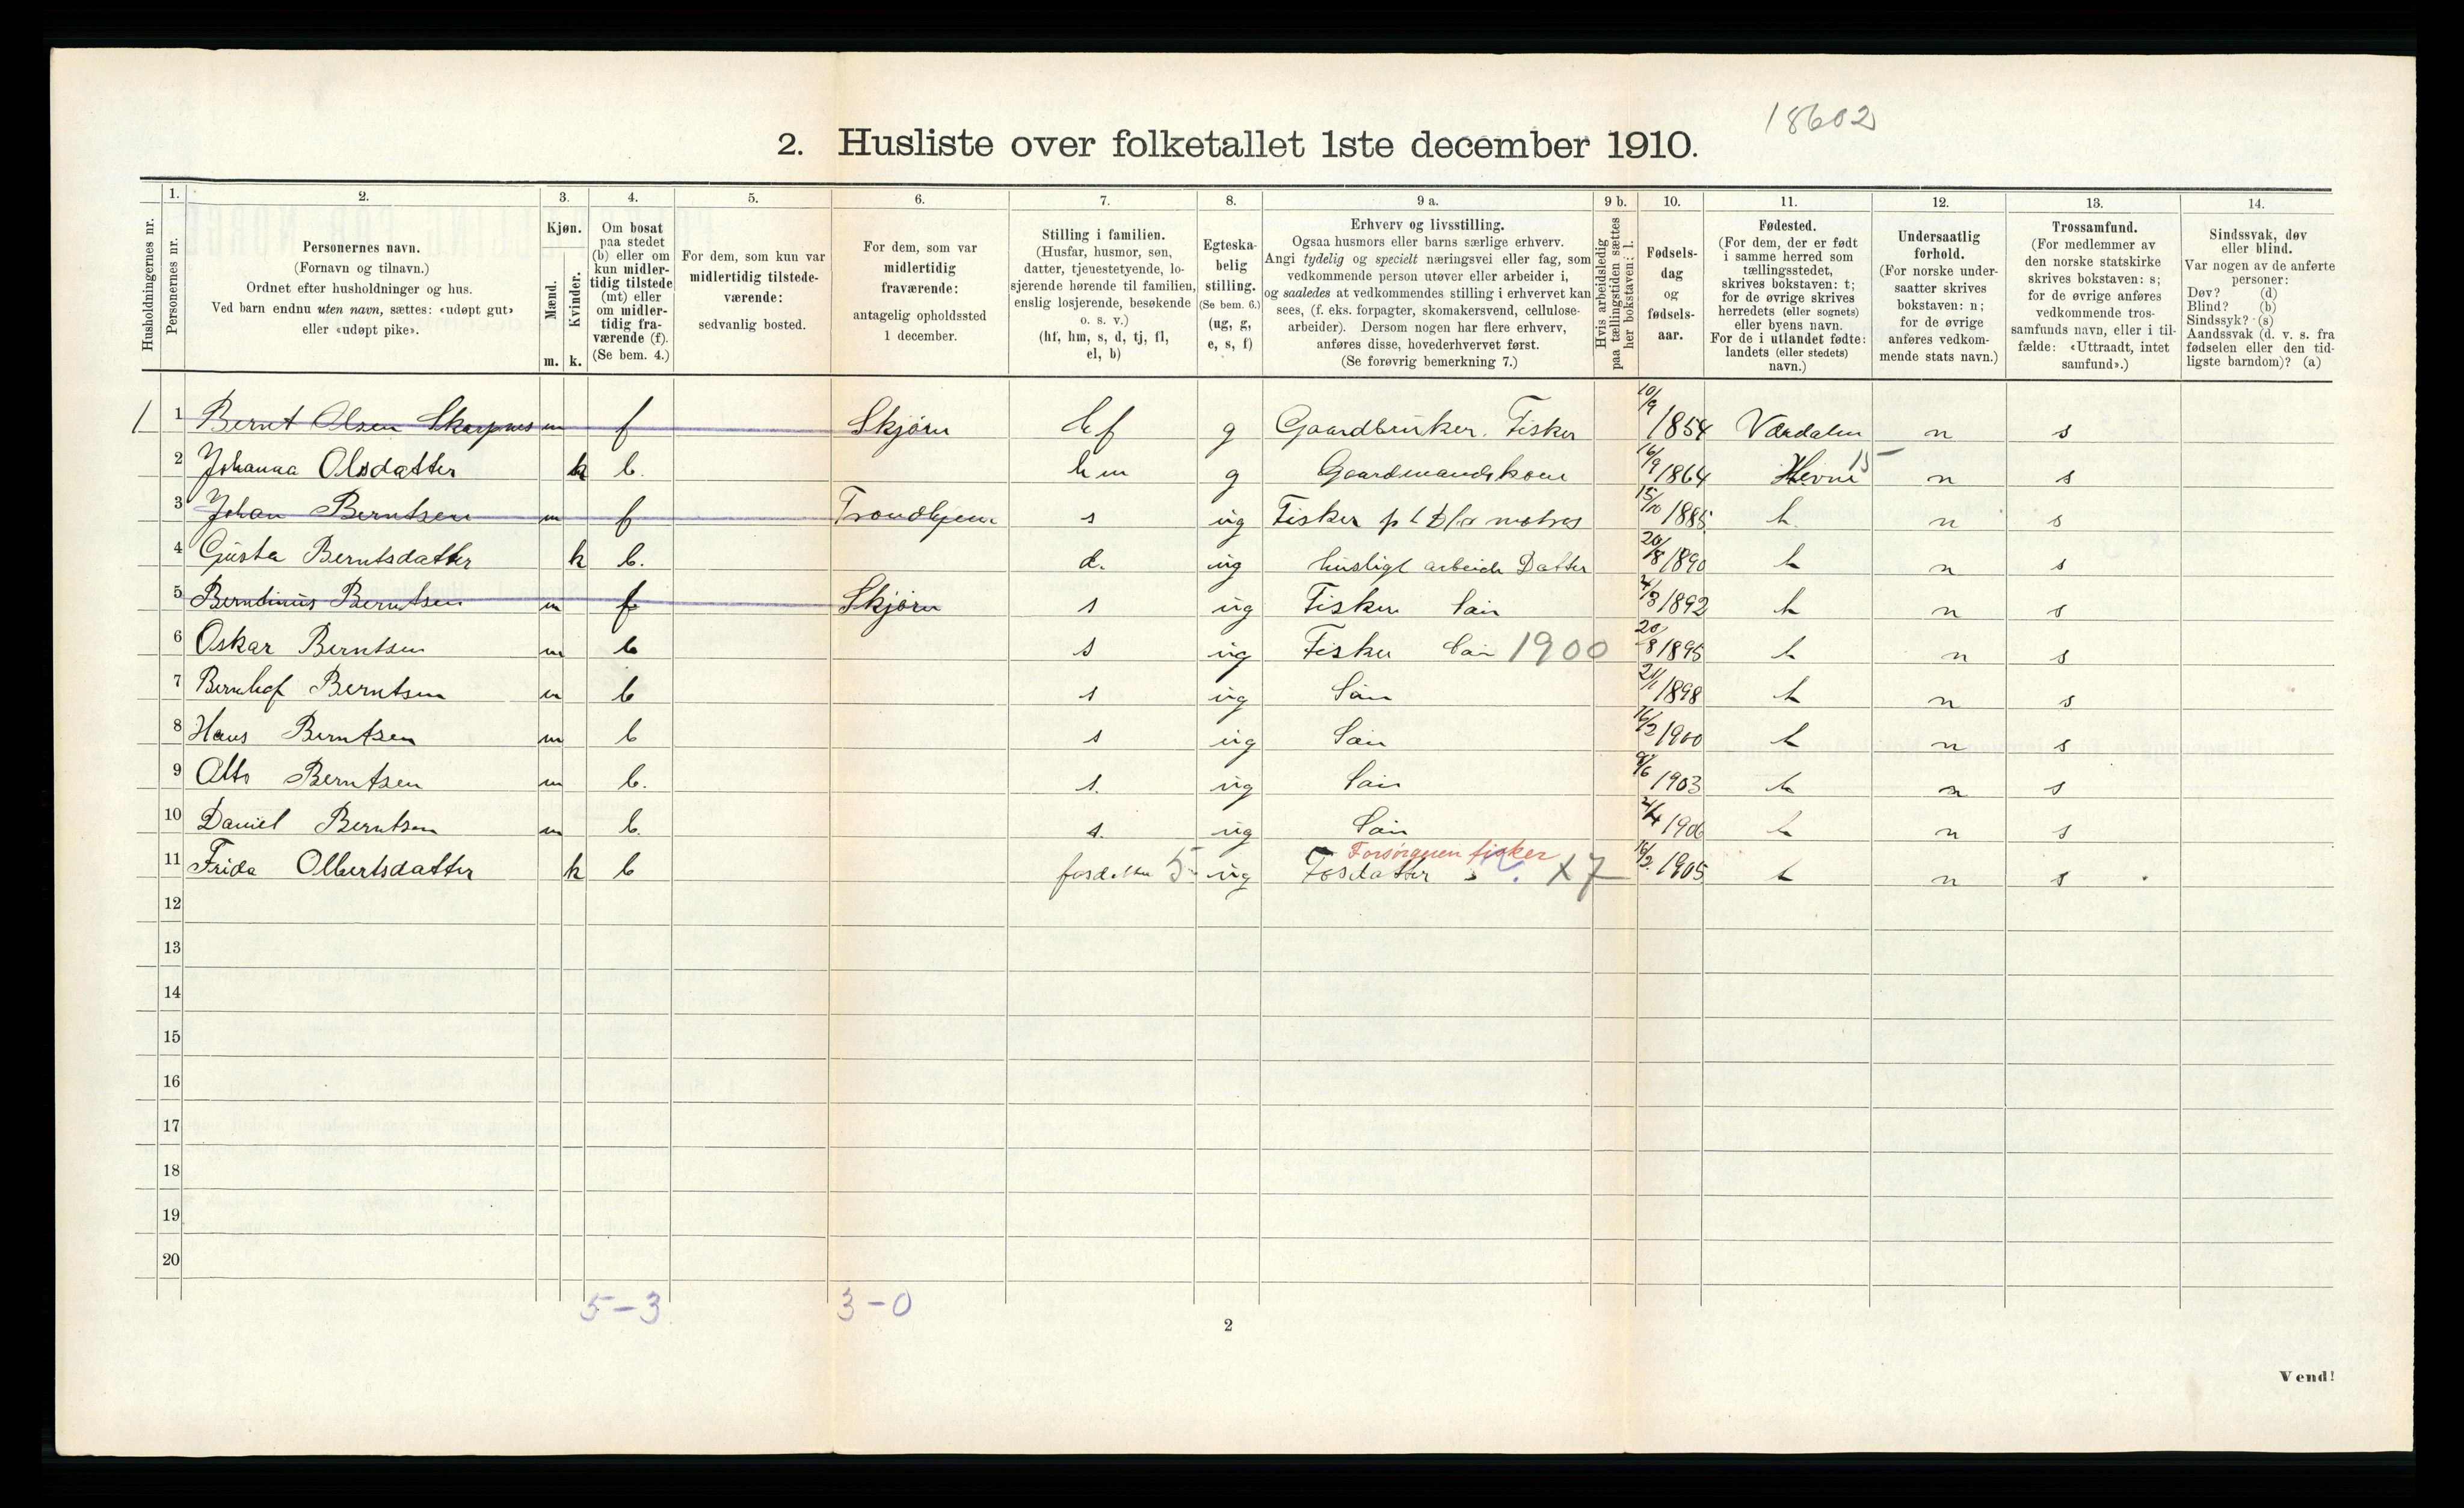 18602
2. Husliste over folketallet 1ste december 1910.
Husholdningernes nr.
1.
Personernes nr.
2.
Personernes navn.
(Fornavn og tilnavn.)
Ordnet efter husholdninger og hus.
Ved barn endnu uten navn, sættes: «udøpt gut»
eller «udøpt pike».
3.
Kjøn.
Mænd.
Kvinder.
m. k.
4.
Om bosat
paa stedet
(b) eller om
kun midler-
tidig tilstede
(mt) eller
om midler-
tidig fra-
værende (f).
(Se bem. 4.)
5.
For dem, som kun var
midlertidig tilstede-
værende:
sedvanlig bosted.
6.
For dem, som var
midlertidig
fraværende:
antagelig opholdssted
1 december.
7.
Stilling i familien.
(Husfar, husmor, søn,
datter, tjenestetyende, lo-
sjerende hørende til familien,
enslig losjerende, besøkende
o. s. v.)
(hf, hm, s, d, tj, fl,
el, b)
8.
Egteska-
belig
stilling.
(Se bem. 6.)
(ug, g,
e, s, f)
9 a.
Erhverv og livsstilling.
Ogsaa husmors eller barns særlige erhverv.
Angi tydelig og specielt næringsvei eller fag, som
vedkommende person utøver eller arbeider i,
og saaledes at vedkommendes stilling i erhvervet kan
sees, (f. eks. forpagter, skomakersvend, cellulose-
arbeider). Dersom nogen har flere erhverv,
anføres disse, hovederhvervet først.
(Se forøvrig bemerkning 7.)
9 b.
Hvis arbeidsledig
paa tællingstiden sættes
her bokstaven: l.
10.
Fødsels-
dag
og
fødsels-
aar.
11.
Fødested.
(For dem, der er født
i samme herred som
tællingsstedet,
skrives bokstaven: t;
for de øvrige skrives
herredets (eller sognets)
eller byens navn.
For de i utlandet fødte:
landets (eller stedets)
navn.)
12.
Undersaatlig
forhold.
(For norske under-
saatter skrives
bokstaven: n;
for de øvrige
anføres vedkom-
mende stats navn.)
13.
Trossamfund.
(For medlemmer av
den norske statskirke
skrives bokstaven: s;
for de øvrige anføres
vedkommende tros-
samfunds navn, eller i til-
fælde: «Uttraadt, intet
samfund».)
14.
Sindssvak, døv
eller blind.
Var nogen av de anførte
personer:
Døv? (d)
Blind? (b)
Sindssyk? (s)
Aandssvak (d. v. s. fra
fødselen eller den tid-
ligste barndom)? (a)
1 1 Bernt Olsen Skarpnes m f Skjørn hf g Gaardbruker. Fisker 10/9 1854 Værdalen n s
2 Johanna Olsdatter k b. hm g Gaardmandskone 16/9 1864 Hevne 15 n s
3 Johan Berntsen m f Trondhjem s ug Fisker 15/10 1885 t n s
4 Gusta Berntsdatter k b. d. ug husligt arbeide Datter 20/8 1890 t n s
5 Berndinus Berntsen m f Skjørn s ug Fisker Søn 4/3 1892 t n s
6 Oskar Berntsen m b s ug Fisker Søn 1900 20/8 1895 t n s
7 Bernhof Berntsen m b s ug Søn 21/1 1898 t n s
8 Hans Berntsen m b s ug Søn 16/2 1900 t n s
9 Otto Berntsen m b. s. ug Søn 9/6 1903 t n s
10 Daniel Berntsen m b. s. ug Søn 2/4 1906 t n s
11 Frida Olbertsdatter k b fosdatter 5 ug Forsørgeren fisker Fosdatter x7 16/2 1905 t n s
12
13
14
15
16
17
18
19
20
5-3 3-0
2
Vend!